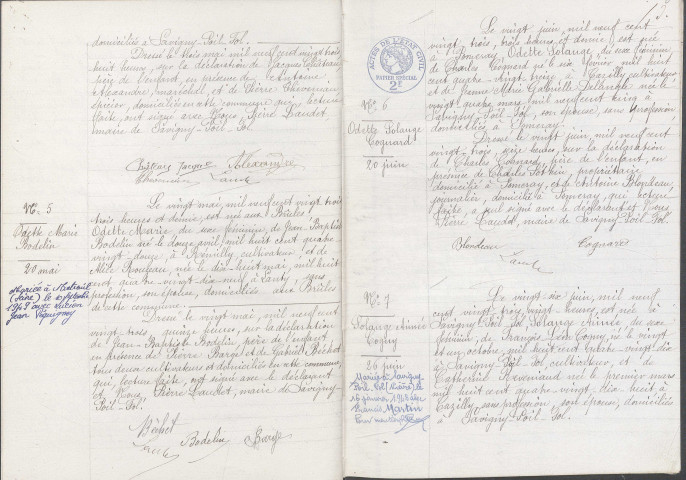 domiciliés à Savigny-Poil-Fol.
Dressé le trois mai mil neuf cent vingt trois
huit heures, sur la déclaration de Jacques
père de l'enfant, en présence de Antoine
Alexandre, maréchal, et de Pierre Chaveneau,
épicier, domiciliés en cette commune qui, lecture
faite, ont signé avec Nous, Pierre Laudet,
maire de Savigny-Poil-Fol.
Jacques Alexandre
N° 5
Odette Marie
Bodelin
20 mai
Mariée à
le
1947 avec Lucien
Jean
Le vingt mai, mil neuf cent vingt trois
trois heures et demie, est née aux Brûlés
Odette Marie, du sexe féminin, de Jean-Baptiste
Bodelin né le douze avril mil huit cent quatre
vingt douze, à Rouilly, cultivateur, et de
née le dix-huit mai, mil huit
cent quatre vingt-dix-neuf à Lanty, sans
profession, son épouse, domiciliés aux Brûlés
de cette commune.
Dressé le vingt mai, mil neuf cent
vingt-trois, quinze heures, sur la déclaration
de Jean-Baptiste Bodelin, père de l'enfant
en présence de Pierre Barge et de Gabriel Bechet
tous deux cultivateurs et domiciliés en cette commune,
qui, lecture faite, ont signé avec le déclarant
et Nous Pierre Laudet, maire de Savigny-
Poil-Fol.
Bechet
Bodelin Barge
ACTES DE L'ÉTAT CIVIL
PAPIER SPÉCIAL
2F
N° 6
Odette Solange
Cognard
20 juin
Le vingt juin, mil neuf cent
vingt trois, trois heures et demie, est née
à Pomeray, Odette Solange, du sexe féminin,
de Charles Cognard né le six février mil huit
cent quatre-vingt treize à Cazilly cultivateur
et de Jeanne Marie Gabrielle Delangle née le
vingt quatre mars mil neuf cent cinq à
Savigny-Poil-Fol, son épouse, sans profession,
domiciliés à Pomeray.
Dressé le vingt juin, mil neuf cent
vingt-trois, seize heures, sur la déclaration
de Charles Cognard, père de l'enfant, en
présence de Charles, propriétaire,
domicilié à Pomeray, et de Antoine Blondeau,
journalier, domicilié à Pomeray, qui lecture
faite, a seul signé avec le déclarant et Nous
Pierre Laudet, maire de Savigny-Poil-Fol.
Blondeau Cognard
N° 7
Solange Aimée
Cogny
26 juin
Mariée à Savigny
Poil-Fol (Nièvre) le
16 janvier 1946 avec
Francis Martin
Le vingt-six juin, mil neuf
cent vingt trois, vingt heures, est née à
Savigny-Poil-Fol, Solange Aimée, du sexe
féminin, de François Cogny, né le vingt
et un octobre, mil huit cent quatre-vingt-dix
à Savigny-Poil-Fol, cultivateur, et de
Catherine née le premier mars
mil huit cent quatre vingt, dix-huit à
Cazilly, sans profession, son épouse, domiciliés
à Savigny-Poil-Fol.